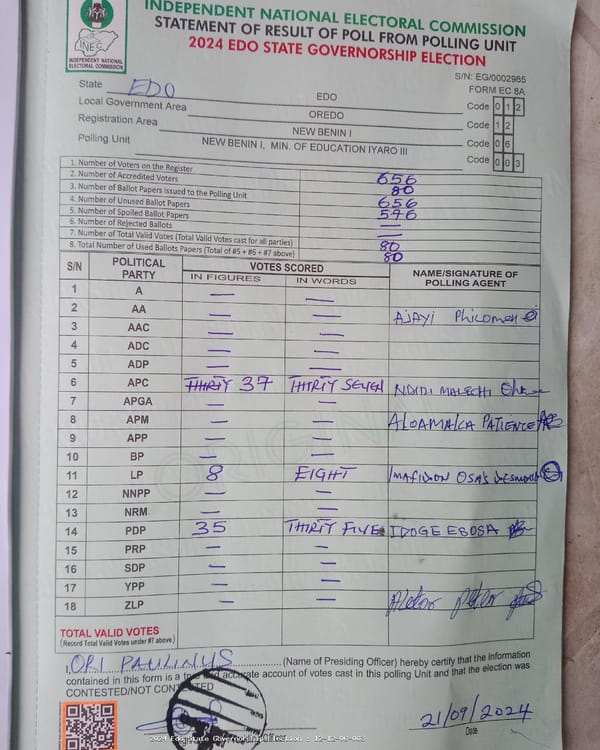 INDEPENDENT NATIONAL ELECTORAL COMMISSION
STATEMENT OF RESULT OF POLL FROM POLLING UNIT
2024 EDO STATE GOVERNORSHIP ELECTION
INEC
INDEPENDENT NATIONAL
ELECTORAL COMMISSION
S/N: EG/0002965
FORM EC 8A
State EDO EDO Code 0 1 2
Local Government Area OREDO Code 1 2
Registration Area NEW BENIN I Code 0 6
Polling Unit NEW BENIN I, MIN. OF EDUCATION IYARO III Code 0 0 3
1. Number of Voters on the Register 656
2. Number of Accredited Voters 80
3. Number of Ballot Papers Issued to the Polling Unit 656
4. Number of Unused Ballot Papers 576
5. Number of Spoiled Ballot Papers —
6. Number of Rejected Ballots —
7. Number of Total Valid Votes (Total Valid Votes cast for all parties) 80
8. Total Number of Used Ballots Papers (Total of #5 + #6 + #7 above) 80
S/N POLITICAL PARTY VOTES SCORED NAME/SIGNATURE OF POLLING AGENT
IN FIGURES IN WORDS
1 A — —
2 AA — — AJAYI Philomen
3 AAC — —
4 ADC — —
5 ADP — —
6 APC THIRTY 37 THIRTY SEVEN NDIDI MALECHI
7 APGA — —
8 APM — — ALOAMAKA PATIENCE
9 APP — —
10 BP — —
11 LP 8 EIGHT IMAFIDON OSAS DESMOND
12 NNPP — —
13 NRM — —
14 PDP 35 THIRTY FIVE IDOGE EBOSA
15 PRP — —
16 SDP — —
17 YPP — —
18 ZLP — — Peter
TOTAL VALID VOTES
(Record Total Valid Votes under #7 above)
I, ORI PAULINUS (Name of Presiding Officer) hereby certify that the information
contained in this form is a true and accurate account of votes cast in this polling Unit and that the election was
CONTESTED/NOT CONTESTED
21/09/2024
Date
2024 Edo State Governorship Election - 12-12-06-003